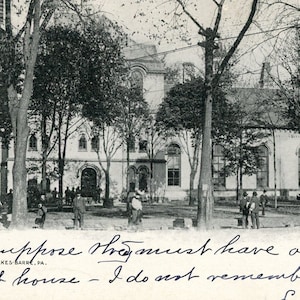 KES-BARRE, PA.
uppose this must have a
t house - I do not rememb